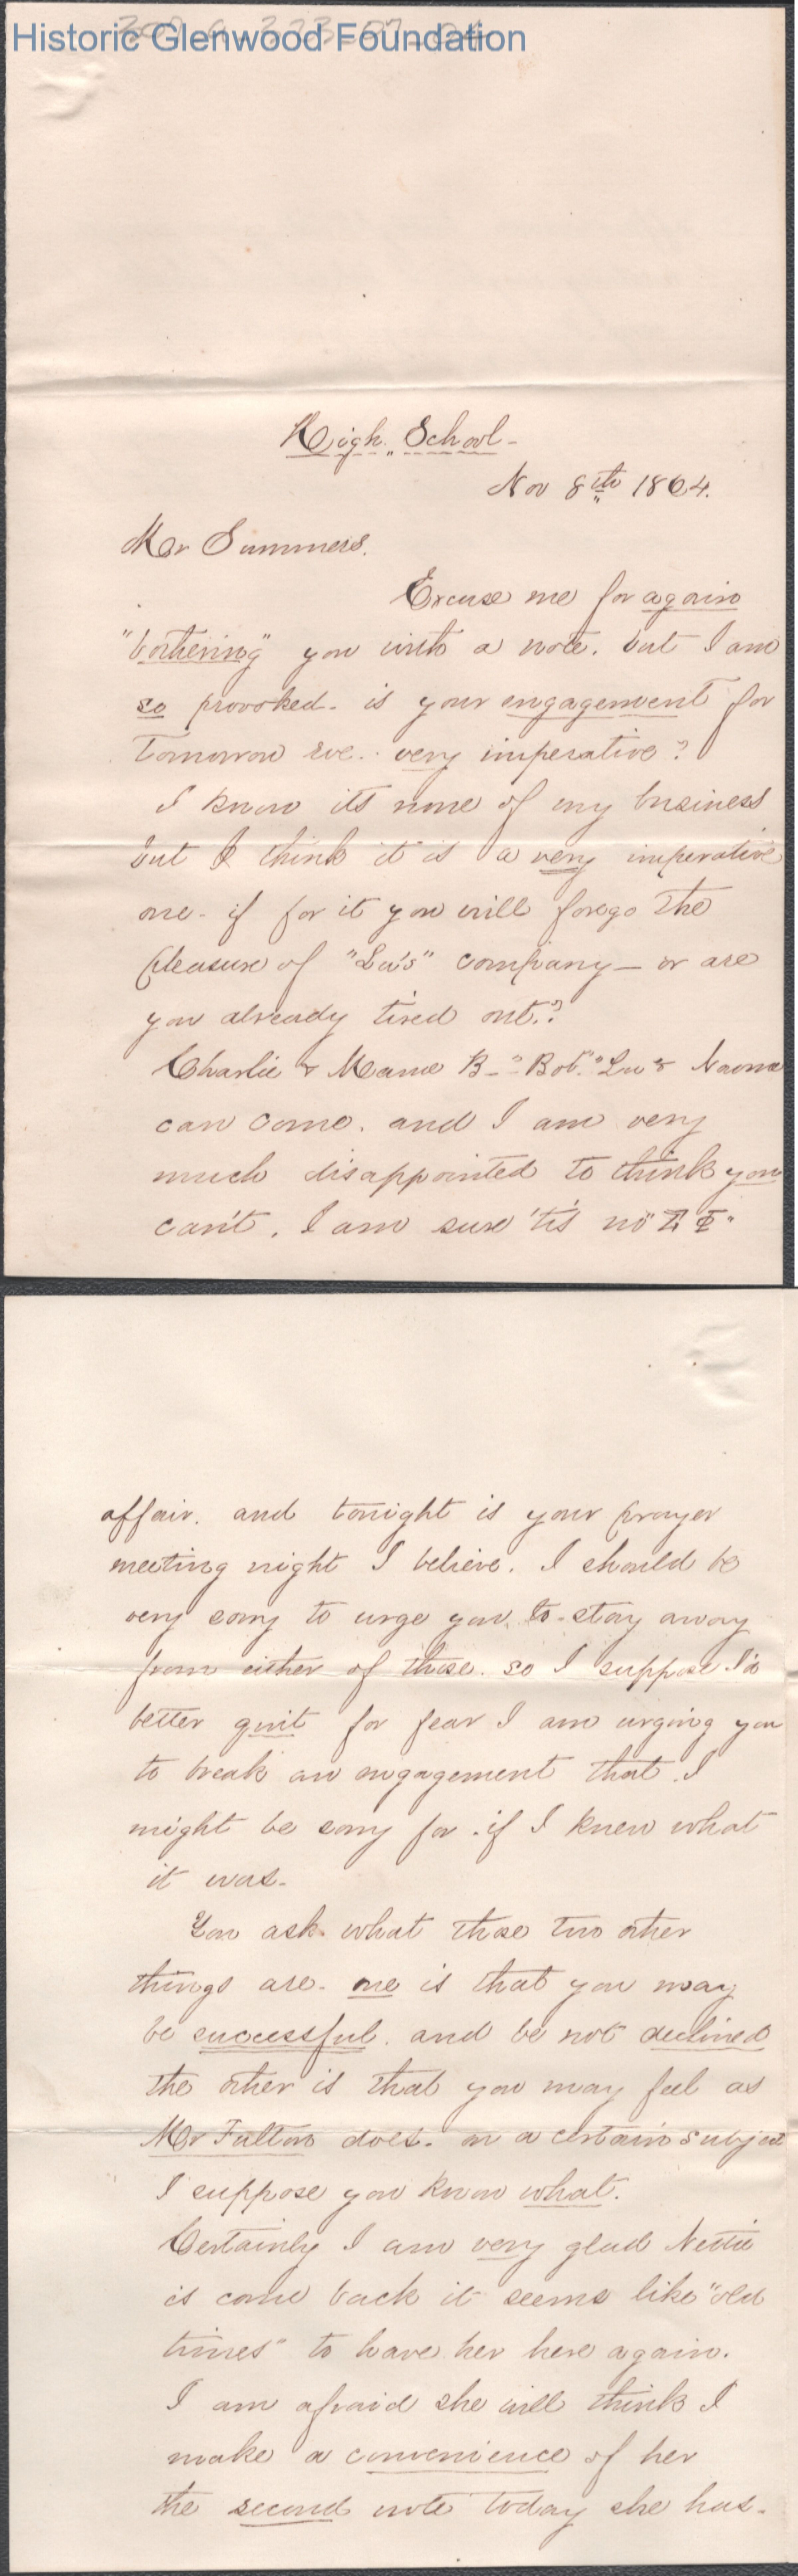 Historic Glenwood Foundation
High School-
Nov 8th 1864.
Mr Summers.
Excuse me for again
"bothering" you with a note. but I am
so provoked- is your engagement for
tomorrow eve.. very imperative?
I know its none of my business
but I think it is a very imperative
one- if for it you will forego the
pleasure of "Lu's" company- or are
you already tired out.?
Charlie & Mame B- "Bob." Lu &
can come. and I am very
much disappointed to think you
can't. I am sure 'tis no
affair. and tonight is your prayer
meeting night I believe. I should be
very sorry to urge you to stay away
from either of these. so I suppose I'd
better quit for fear I am urging you
to break an engagement that I
might be sorry for. if I knew what
it was-
You ask what those two other
things are- one is that you may
be successful. and be not declined
the other is that you may feel as
Mr Fulton does- on a certain subject
I suppose you know what.
Certainly I am very glad Nettie
is come back it seems like "old
times" to have her here again.
I am afraid she will think I
make a convenience of her
the second note today she has-